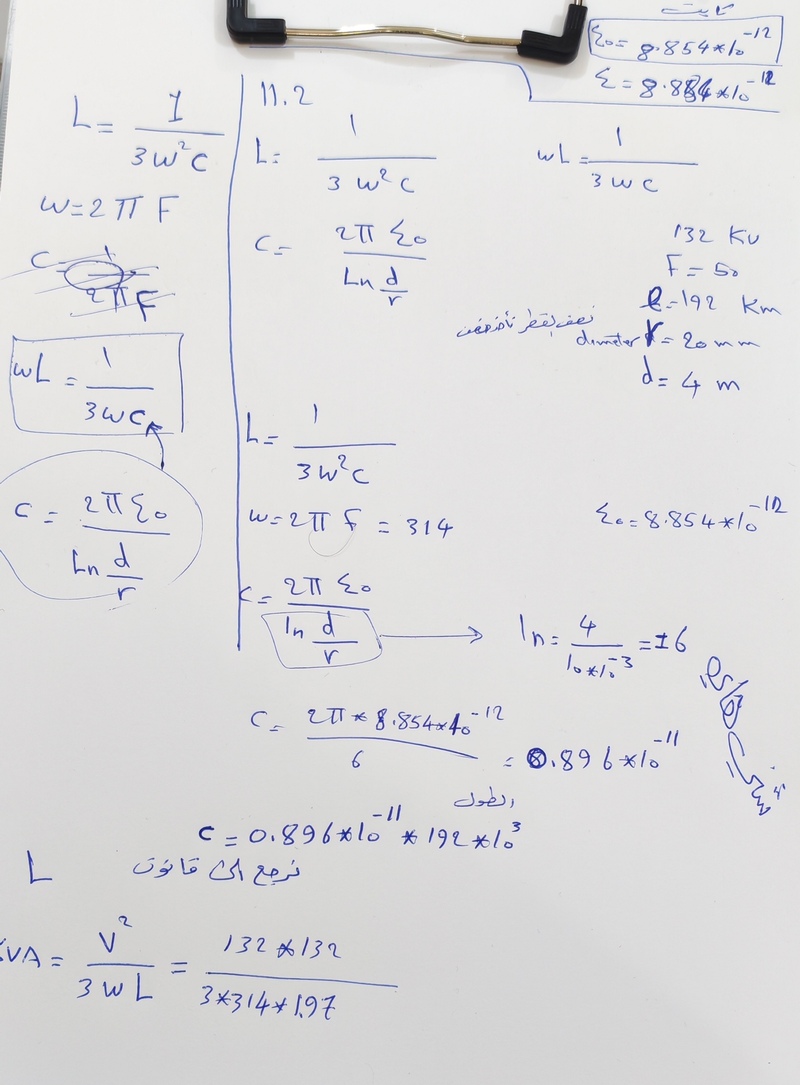 ε₀ = 8.854*10^-12
ε = 8.854*10^-12
L = 1 / 3 w² c
w = 2 π F
c = 1 / 2 π F
wL = 1 / 3 w c
c = 2π ε₀ / Ln d/r
11.2
L = 1 / 3 w² c
wL = 1 / 3 w c
c = 2π ε₀ / Ln d/r
132 Kv
F = 50
l = 192 Km
diameter r = 20 mm
d = 4 m
L = 1 / 3 w² c
w = 2 π F = 314
ε₀ = 8.854*10^-12
c = 2π ε₀ / ln d/r
ln = 4 / 10*10^-3 = 6
c = 2π * 8.854*10^-12 / 6 = 0.896*10^-11
الطول
c = 0.896*10^-11 * 192*10^3
نرجع الى قانون L
VA = V² / 3 w L = 132*132 / 3*314*1.97